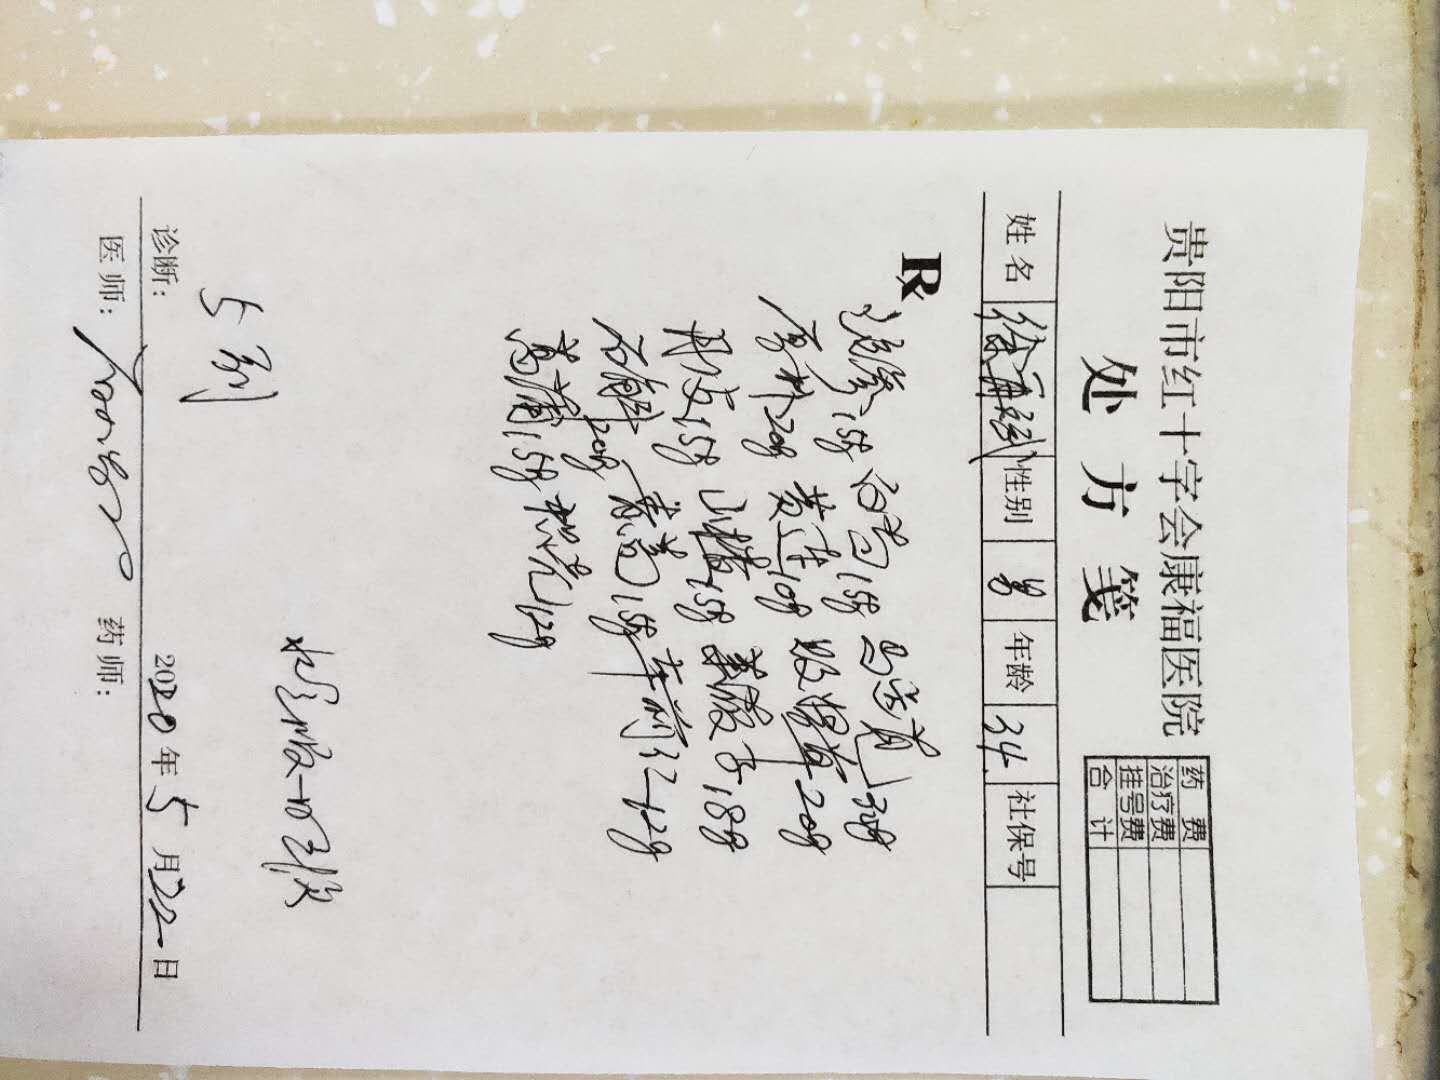 贵阳市红十字会康福医院
处方笺
药费
治疗费
挂号费
合计
姓名 徐 性别 男 年龄 34 社保号
R
15g 白芍15g 30g
厚朴20g 黄连10g 败酱草20g
15g 山楂15g 莱菔子18g
石斛20g 15g 车前仁12g
菖蒲15g 枳壳12g
水煎服一日三次
5剂
诊断:
2020年5月22日
医师: 药师: